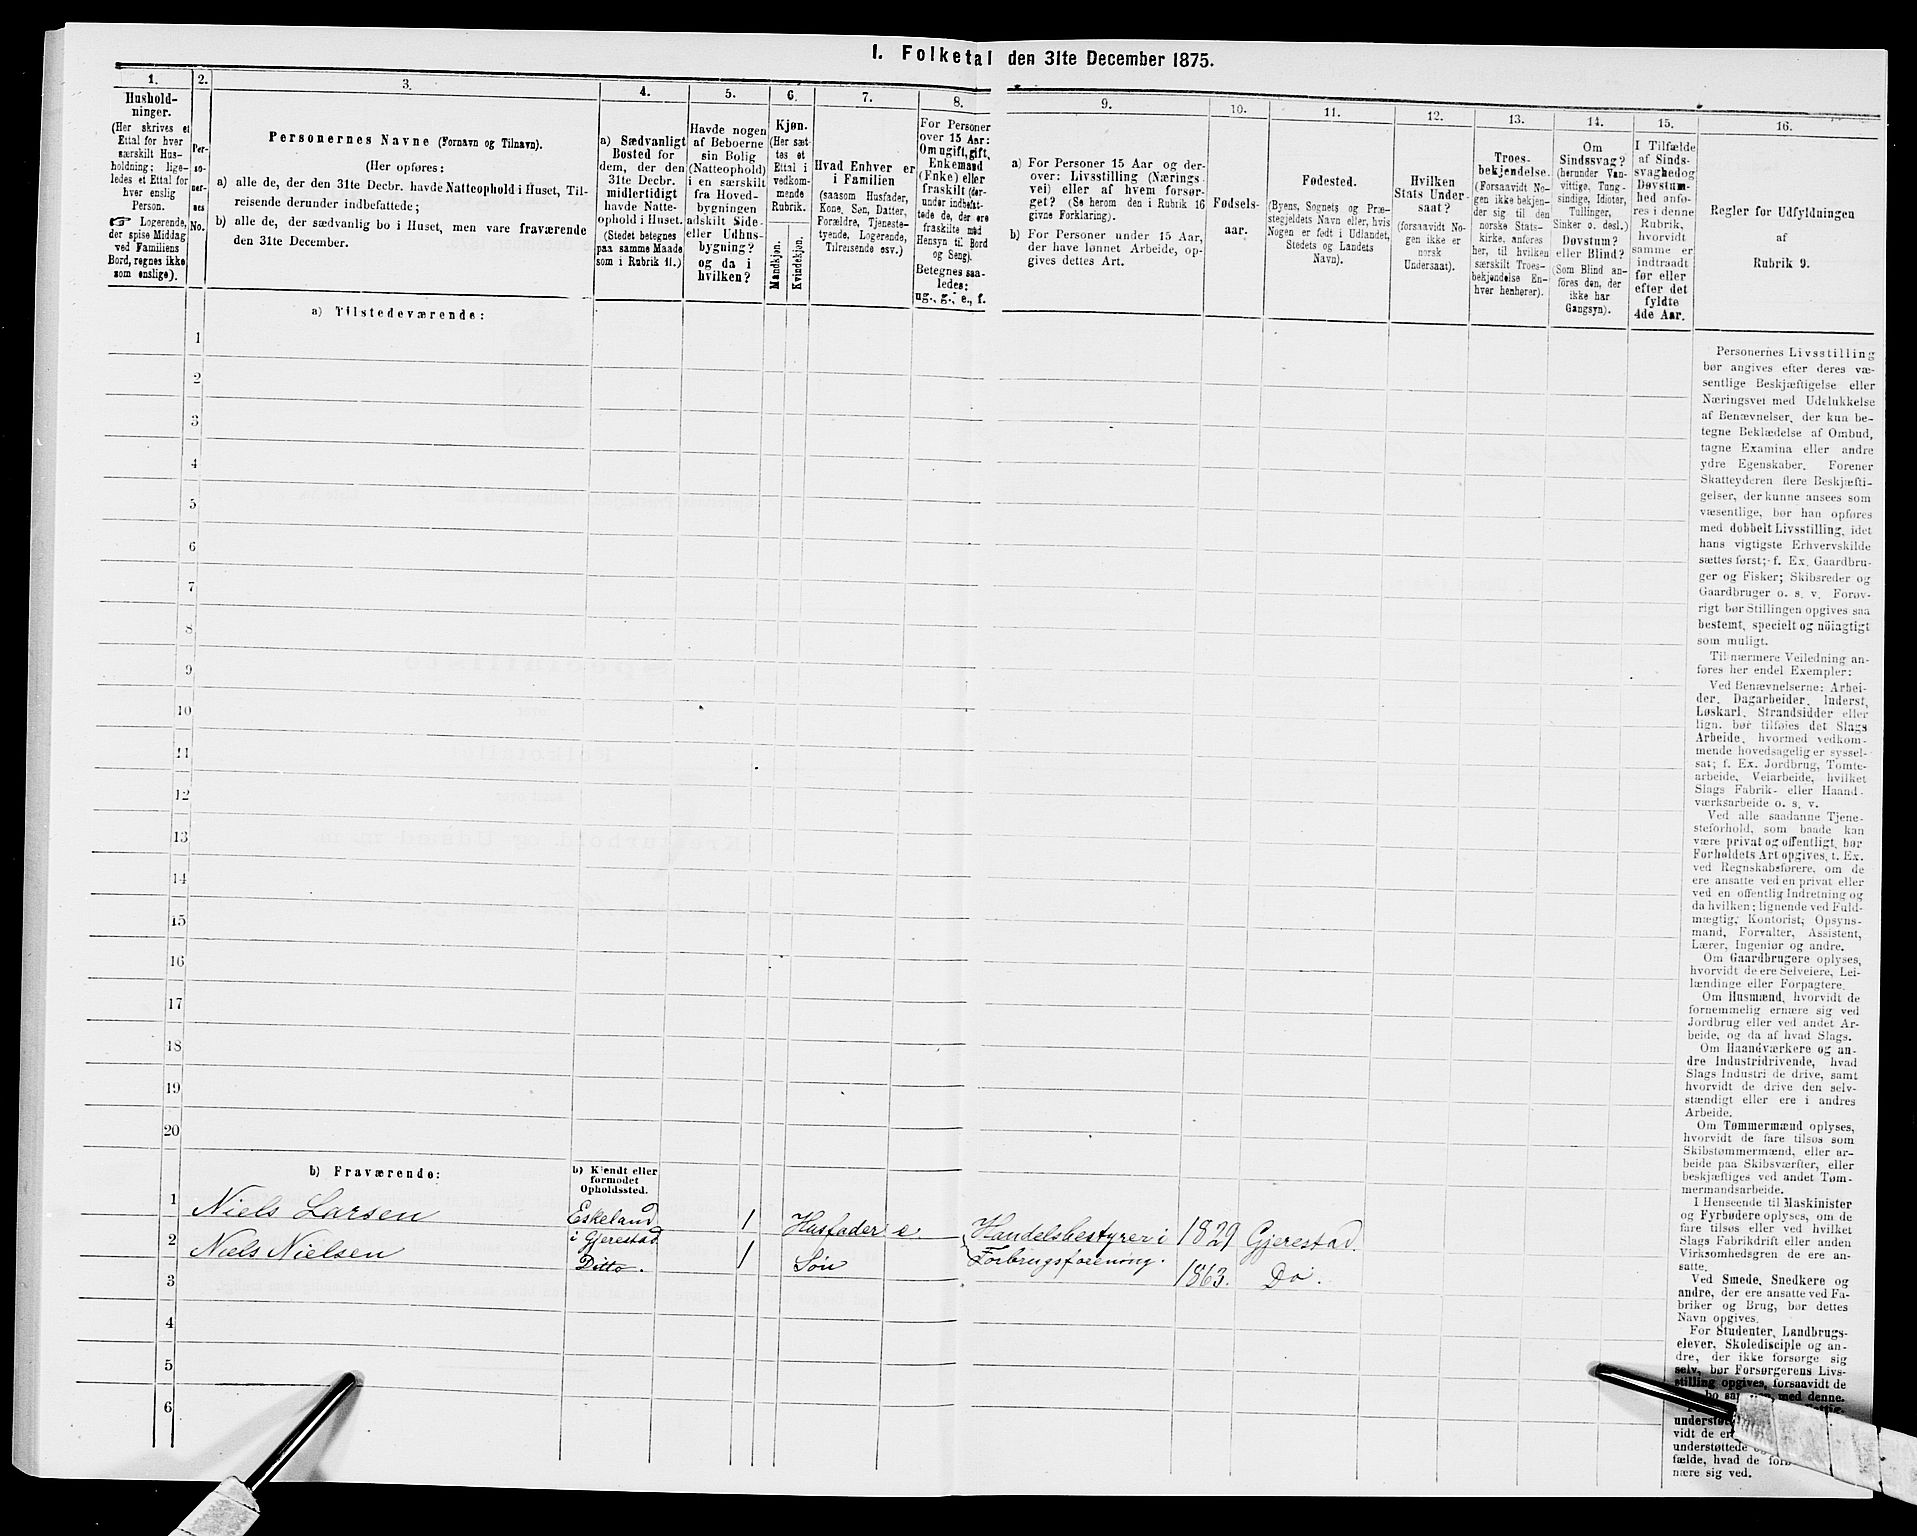 I. Folketal den 31te December 1875.
1.
Hushold-
ninger.
(Her skrives et
Ettal for hver
særskilt Hus-
holdning; lige-
ledes et Ettal for
hver enslig
Person.
☞ Logerende,
der spise Middag
ved Familiens
Bord, regnes ikke
som enslige).
2.
Per-
so-
ner-
nes
No.
3.
Personernes Navne (Fornavn og Tilnavn).
(Her opføres:
a) alle de, der den 31te Decbr. havde Natteophold i Huset, Til-
reisende derunder indbefattede;
b) alle de, der sædvanlig bo i Huset, men vare fraværende
den 31te December.
4.
a) Sædvanligt
Bosted for
dem, der den
31te Decbr.
midlertidigt
havde Natte-
ophold i Huset.
(Stedet betegnes
paa samme Maade
som i Rubrik 11.)
5.
Havde nogen
af Beboerne
sin Bolig
(Natteophold)
i en særskilt
fra Hoved-
bygningen
adskilt Side-
eller Udhus-
bygning?
og da i
hvilken?
6.
Kjøn.
(Her sæt-
tes et
Ettal i
vedkom-
mende
Rubrik.
Mandkjøn.
Kvindekjøn.
7.
Hvad Enhver er
i Familien
(saasom Husfader,
Kone, Søn, Datter,
Forældre, Tjeneste-
tyende, Logerende,
Tilreisende osv.)
8.
For Personer
over 15 Aar:
Om ugift, gift,
Enkemand
(Enke) eller
fraskilt (der-
under indbefat-
tede de, der ere
fraskilte med
Hensyn til Bord
og Seng).
Betegnes saa-
ledes:
ug., g., e., f.
9.
a) For Personer 15 Aar og der-
over: Livsstilling (Nærings
vei) eller af hvem forsør-
get? (Se herom den i Rubrik 16
givne Forklaring).
b) For Personer under 15 Aar,
der have lønnet Arbeide, op-
gives dettes Art.
10.
Fødsels-
aar.
11.
Fødested.
(Byens, Sognets og Præ-
stegjeldets Navn eller, hvis
Nogen er født i Udlandet,
Stedets og Landets
Navn).
12.
Hvilken
Stats Under-
saat?
(forsaavidt No-
gen ikke er
norsk
Undersaat).
13.
Troes-
bekjendelse.
(Forsaavidt No-
gen ikke bekjen-
der sig til den
norske Stats-
kirke, anføres
her, til hvilken
særskilt Troes-
bekjendelse En-
hver henhører).
14.
Om
Sindssvag?
(herunder Van-
vittige, Tung-
sindige, Idioter,
Tullinger,
Sinker o. desl.)
Døvstum?
eller Blind?
(Som Blind an-
føres den, der
ikke har
Gangsyn).
15.
I Tilfælde
af Sinds-
svaghed og
Døvstum-
hed anfø-
res i denne
Rubrik,
hvorvidt
samme er
indtraadt
før eller
efter det
fyldte
4de Aar.
16.
Regler for Udfyldningen
af
Rubrik 9.
a) Tilstedeværende:
1
2
3
4
5
6
7
8
9
10
11
12
13
14
15
16
17
18
19
20
b) Fraværende:
b) Kjendt eller
formodet
Opholdssted.
1 Niels Larsen Eskeland 1 Husfader e Handelsbestyrer i 1829 Gjerestad.
i Gjerestad
2 Niels Nielsen Ditto. 1 Søn Forbrugsforening. 1863. Do.
3
4
5
6
Personernes Livsstilling
bør angives efter deres væ-
sentlige Beskjæftigelse eller
Næringsvei med Udelukkelse
af Benævnelser, der kun be-
tegne Beklædelse af Ombud,
tagne Examina eller andre
ydre Egenskaber. Forener
Skatteyderen flere Beskjæfti-
gelser, der kunne ansees som
væsentlige, bør han opføres
med dobbelt Livsstilling, idet
hans vigtigste Erhvervskilde
sættes først; f. Ex. Gaardbru-
ger og Fisker; Skibsreder og
Gaardbruger o. s. v. Forøv-
rigt bør Stillingen opgives saa
bestemt, specielt og nöiagtigt
som muligt.
Til nærmere Veiledning an-
føres her endel Exempler:
Ved Benævnelserne: Arbei-
der, Dagarbeider, Inderst,
Løskarl, Strandsidder eller
lign. bør tilføies det Slags
Arbeide, hvormed vedkom-
mende hovedsagelig er syssel-
sat; f. Ex. Jordbrug, Tomte-
arbeide, Veiarbeide, hvilket
Slags Fabrik- eller Haand-
værksarbeide o. s. v.
Ved alle saadanne Tjene-
steforhold, som baade kan
være privat og offentligt, bør
Forholdets Art opgives, f. Ex.
ved Regnskabsførere, om de
ere ansatte ved en privat eller
ved en offentlig Indretning og
da hvilken; lignende ved Fuld-
mægtig, Kontorist, Opsyns-
mand, Forvalter, Assistent,
Lærer, Ingeniør og andre.
Om Gaardbrugere oplyses,
hvorvidt de ere Selveiere, Lei-
lændinge eller Forpagtere.
Om Husmænd, hvorvidt de
fornemmelig ernære sig ved
Jordbrug eller ved andet Ar-
beide, og da af hvad Slags.
Om Haandværkere og an-
dre Industridrivende, hvad
Slags Industri de drive, samt
hvorvidt de drive den selv-
stændigt eller ere i andres
Arbeide.
Om Tømmermænd oplyses,
hvorvidt de fare tilsøs som
Skibstømmermænd, eller ar-
beide paa Skibsværfter, eller
beskjæftiges ved andet Tøm-
mermandsarbeide.
I Henseende til Maskinister
og Fyrbødere oplyses, om de
fare tilsøs eller ved hvilket
Slags Fabrikdrift eller anden
Virksomhedsgren de ere an-
satte.
Ved Smede, Snedkere og
andre, der ere ansatte ved Fa-
briker og Brug, bør dettes
Navn opgives.
For Studenter, Landbrugs-
elever, Skoledisciple og an-
dre, der ikke forsørge sig
selv, bør Forsørgerens Livs-
stilling opgives, forsaavidt de
bo med denne.
understøt
vidt de er
understøttede
fælde, hvad de
nære sig ved.